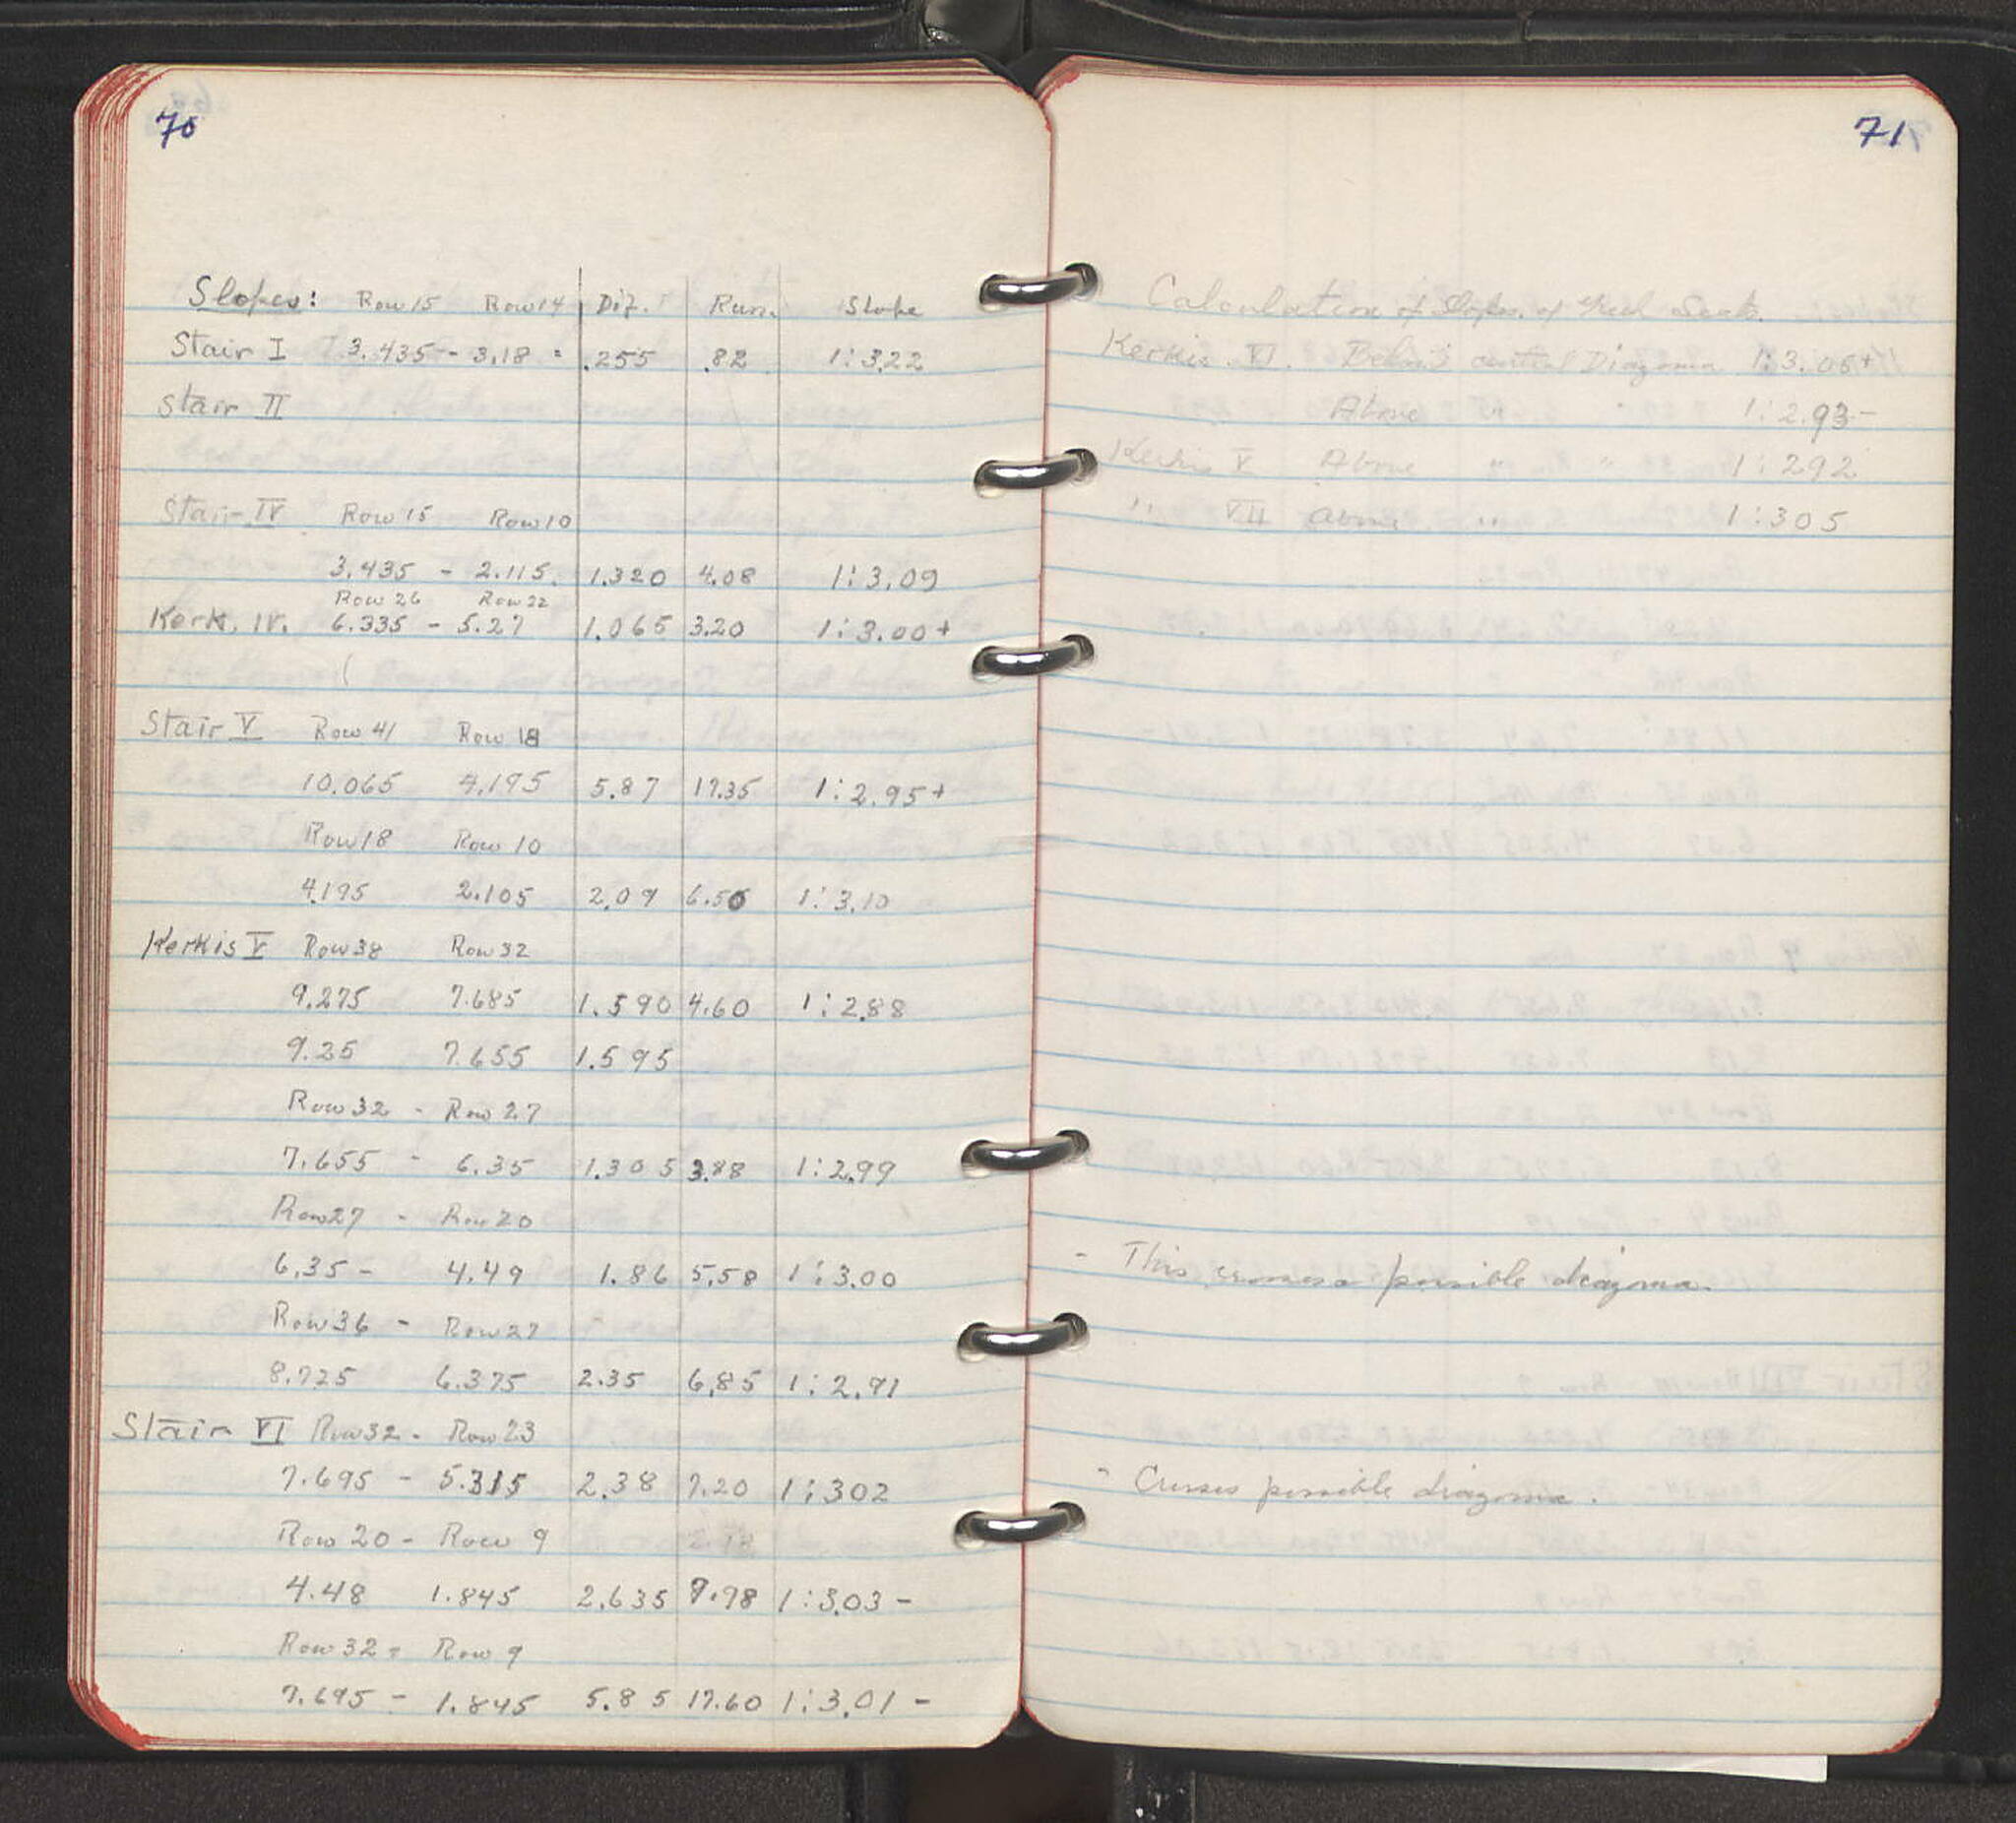 70
Slopes: Row 15 Row 14 Dif. Run. Slope
Stair I 3.435 - 3.18 = .255 .82 1:3.22
Stair II
Stair IV Row 15 Row 10
3.435 - 2.115 1.320 4.08 1:3.09
Row 26 Row 22
Kerk. IV. 6.335 - 5.27 1.065 3.20 1:3.00+
Stair V Row 41 Row 18
10.065 4.195 5.87 17.35 1:2.95+
Row 18 Row 10
4.195 2.105 2.09 6.50 1:3.10
Kerkis V Row 38 Row 32
9.275 7.685 1.590 4.60 1:2.88
9.25 7.655 1.595
Row 32 - Row 27
7.655 - 6.35 1.305 3.88 1:2.99
Row 27 - Row 20
6.35 - 4.49 1.86 5.58 1:3.00
Row 36 - Row 27
8.725 6.375 2.35 6.85 1:2.91
Stair VI Row 32 - Row 23
7.695 - 5.315 2.38 7.20 1:302
Row 20 - Row 9
4.48 1.845 2.635 7.98 1:3.03 -
Row 32 - Row 9
7.695 - 1.845 5.85 17.60 1:3.01 -
71
Calculation of Slopes of Greek Seats.
Kerkis VI. Below central Diazoma 1:3.05+
Above " 1:2.93-
Kerkis V Above " 1:292
" VII above " 1:305
- This crosses a possible diazoma.
- Crosses possible diazoma.